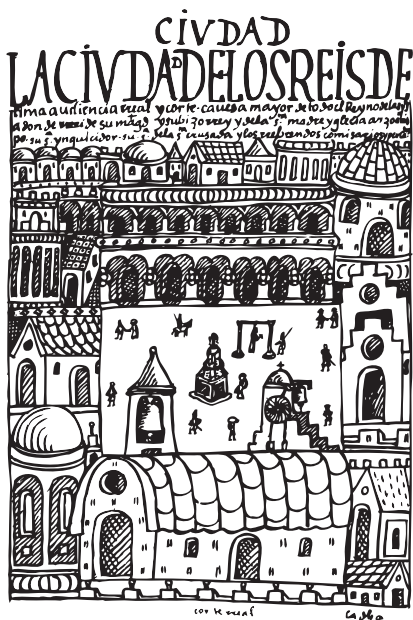 CIVDAD
LACIVDAD DELOSREISDE
lima audiencia rreal ycorte. caueza mayor de todo el Reyno delas
adon de su mag.d ysubi zorrey ydela s.ta madre yglecia
po. su s. ynquicidor. su s. dela s.ta crusada ylos reberendos comisarios
cor te real